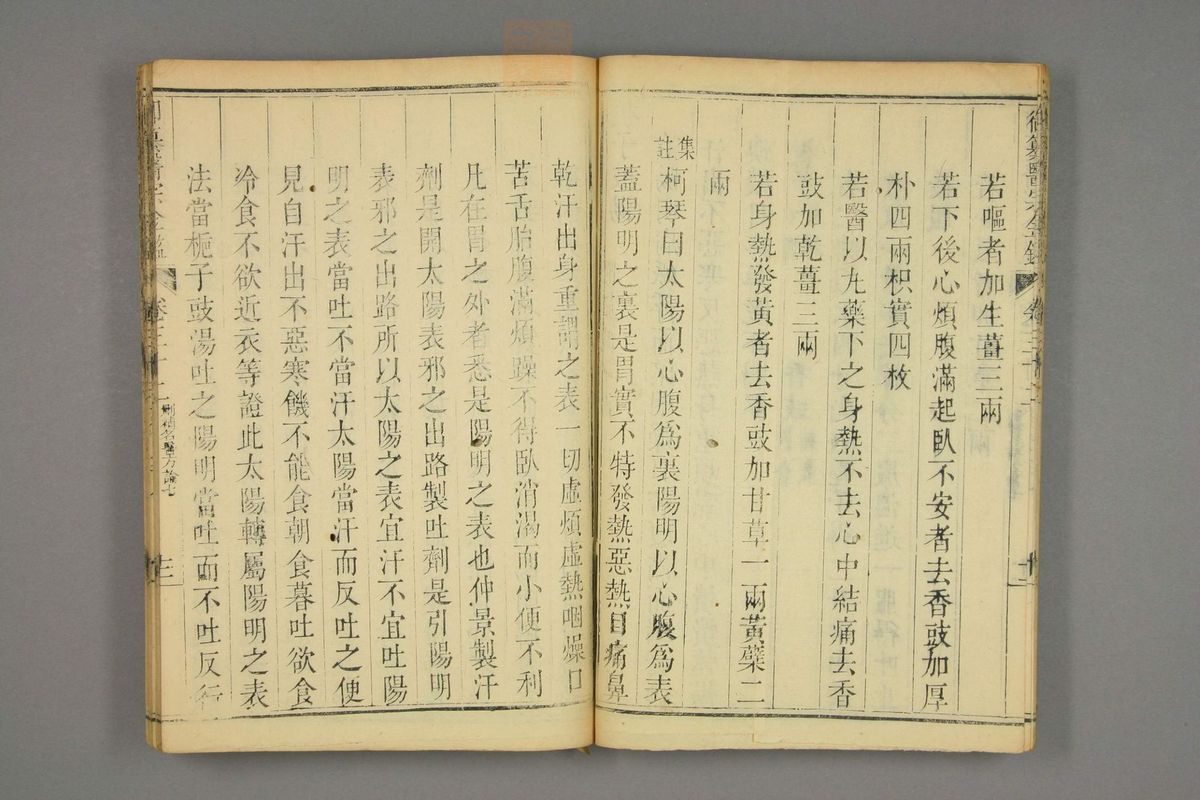 御纂醫宗金鑑 卷三十二 十二
若嘔者加生薑三兩
若下後心煩腹滿起臥不安者去香豉加厚
朴四兩枳實四枚
若醫以丸藥下之身熱不去心中結痛去香
豉加乾薑三兩
若身熱發黃者去香豉加甘草一兩黃蘗二
兩
集註 柯琴曰太陽以心腹為裏陽明以心腹為表
蓋陽明之裏是胃實不特發熱惡熱目痛鼻
乾汗出身重謂之表一切虛煩虛熱咽燥口
苦舌胎腹滿煩躁不得臥消渴而小便不利
凡在胃之外者悉是陽明之表也仲景製汗
劑是開太陽表邪之出路製吐劑是引陽明
表邪之出路所以太陽之表宜汗不宜吐陽
明之表當吐不當汗太陽當汗而反吐之便
見自汗出不惡寒饑不能食朝食暮吐欲食
冷食不欲近衣等證此太陽轉屬陽明之表
法當梔子豉湯吐之陽明當吐而不吐反行
刪補名醫方論七